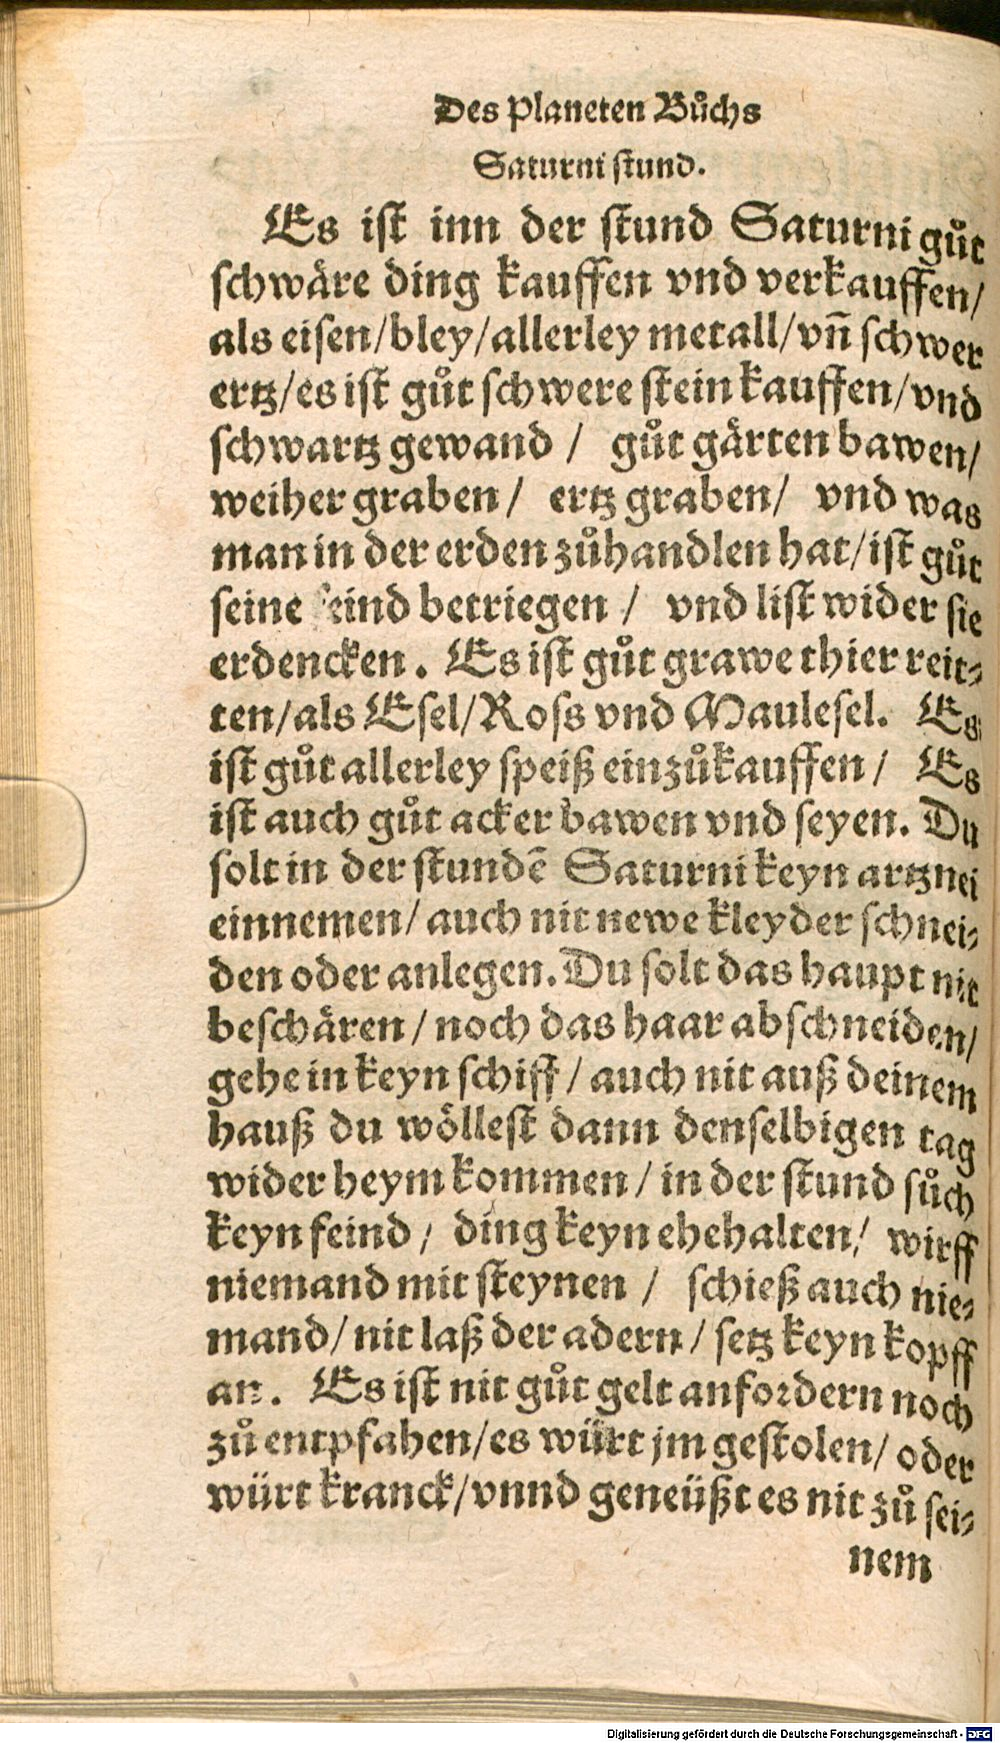 Des Planeten Bůchs
Saturni stund.
Es ist inn der stund Saturni gůt
schwäre ding kauffen vnd verkauffen/
als eisen/bley/allerley metall/vñ schwer
ertz/es ist gůt schwere stein kauffen/vnd
schwartz gewand / gůt gärten bawen/
weiher graben/ ertz graben/ vnd was
man in der erden zůhandlen hat/ist gůt
seine feind betriegen / vnd list wider sie
erdencken. Es ist gůt grawe thier reit⸗
ten/als Esel/Ross vnd Maulesel. Es
ist gůt allerley speiß einzůkauffen/ Es
ist auch gůt acker bawen vnd seyen. Du
solt in der stundẽ Saturni keyn artznei
einnemen/auch nit newe kleyder schnei⸗
den oder anlegen. Du solt das haupt nit
beschären/noch das haar abschneiden/
gehe in keyn schiff/auch nit auß deinem
hauß du wöllest dann denselbigen tag
wider heym kommen/in der stund sůch
keyn feind/ ding keyn ehehalten/ wirff
niemand mit steynen / schieß auch nie⸗
mand/nit laß der adern/setz keyn kopff
an. Es ist nit gůt gelt anfordern noch
zů entpfahen/es würt jm gestolen/oder
würt kranck/vnnd geneüßt es nit zů sei⸗
nem
Digitalisierung gefördert durch die Deutsche Forschungsgemeinschaft - DFG